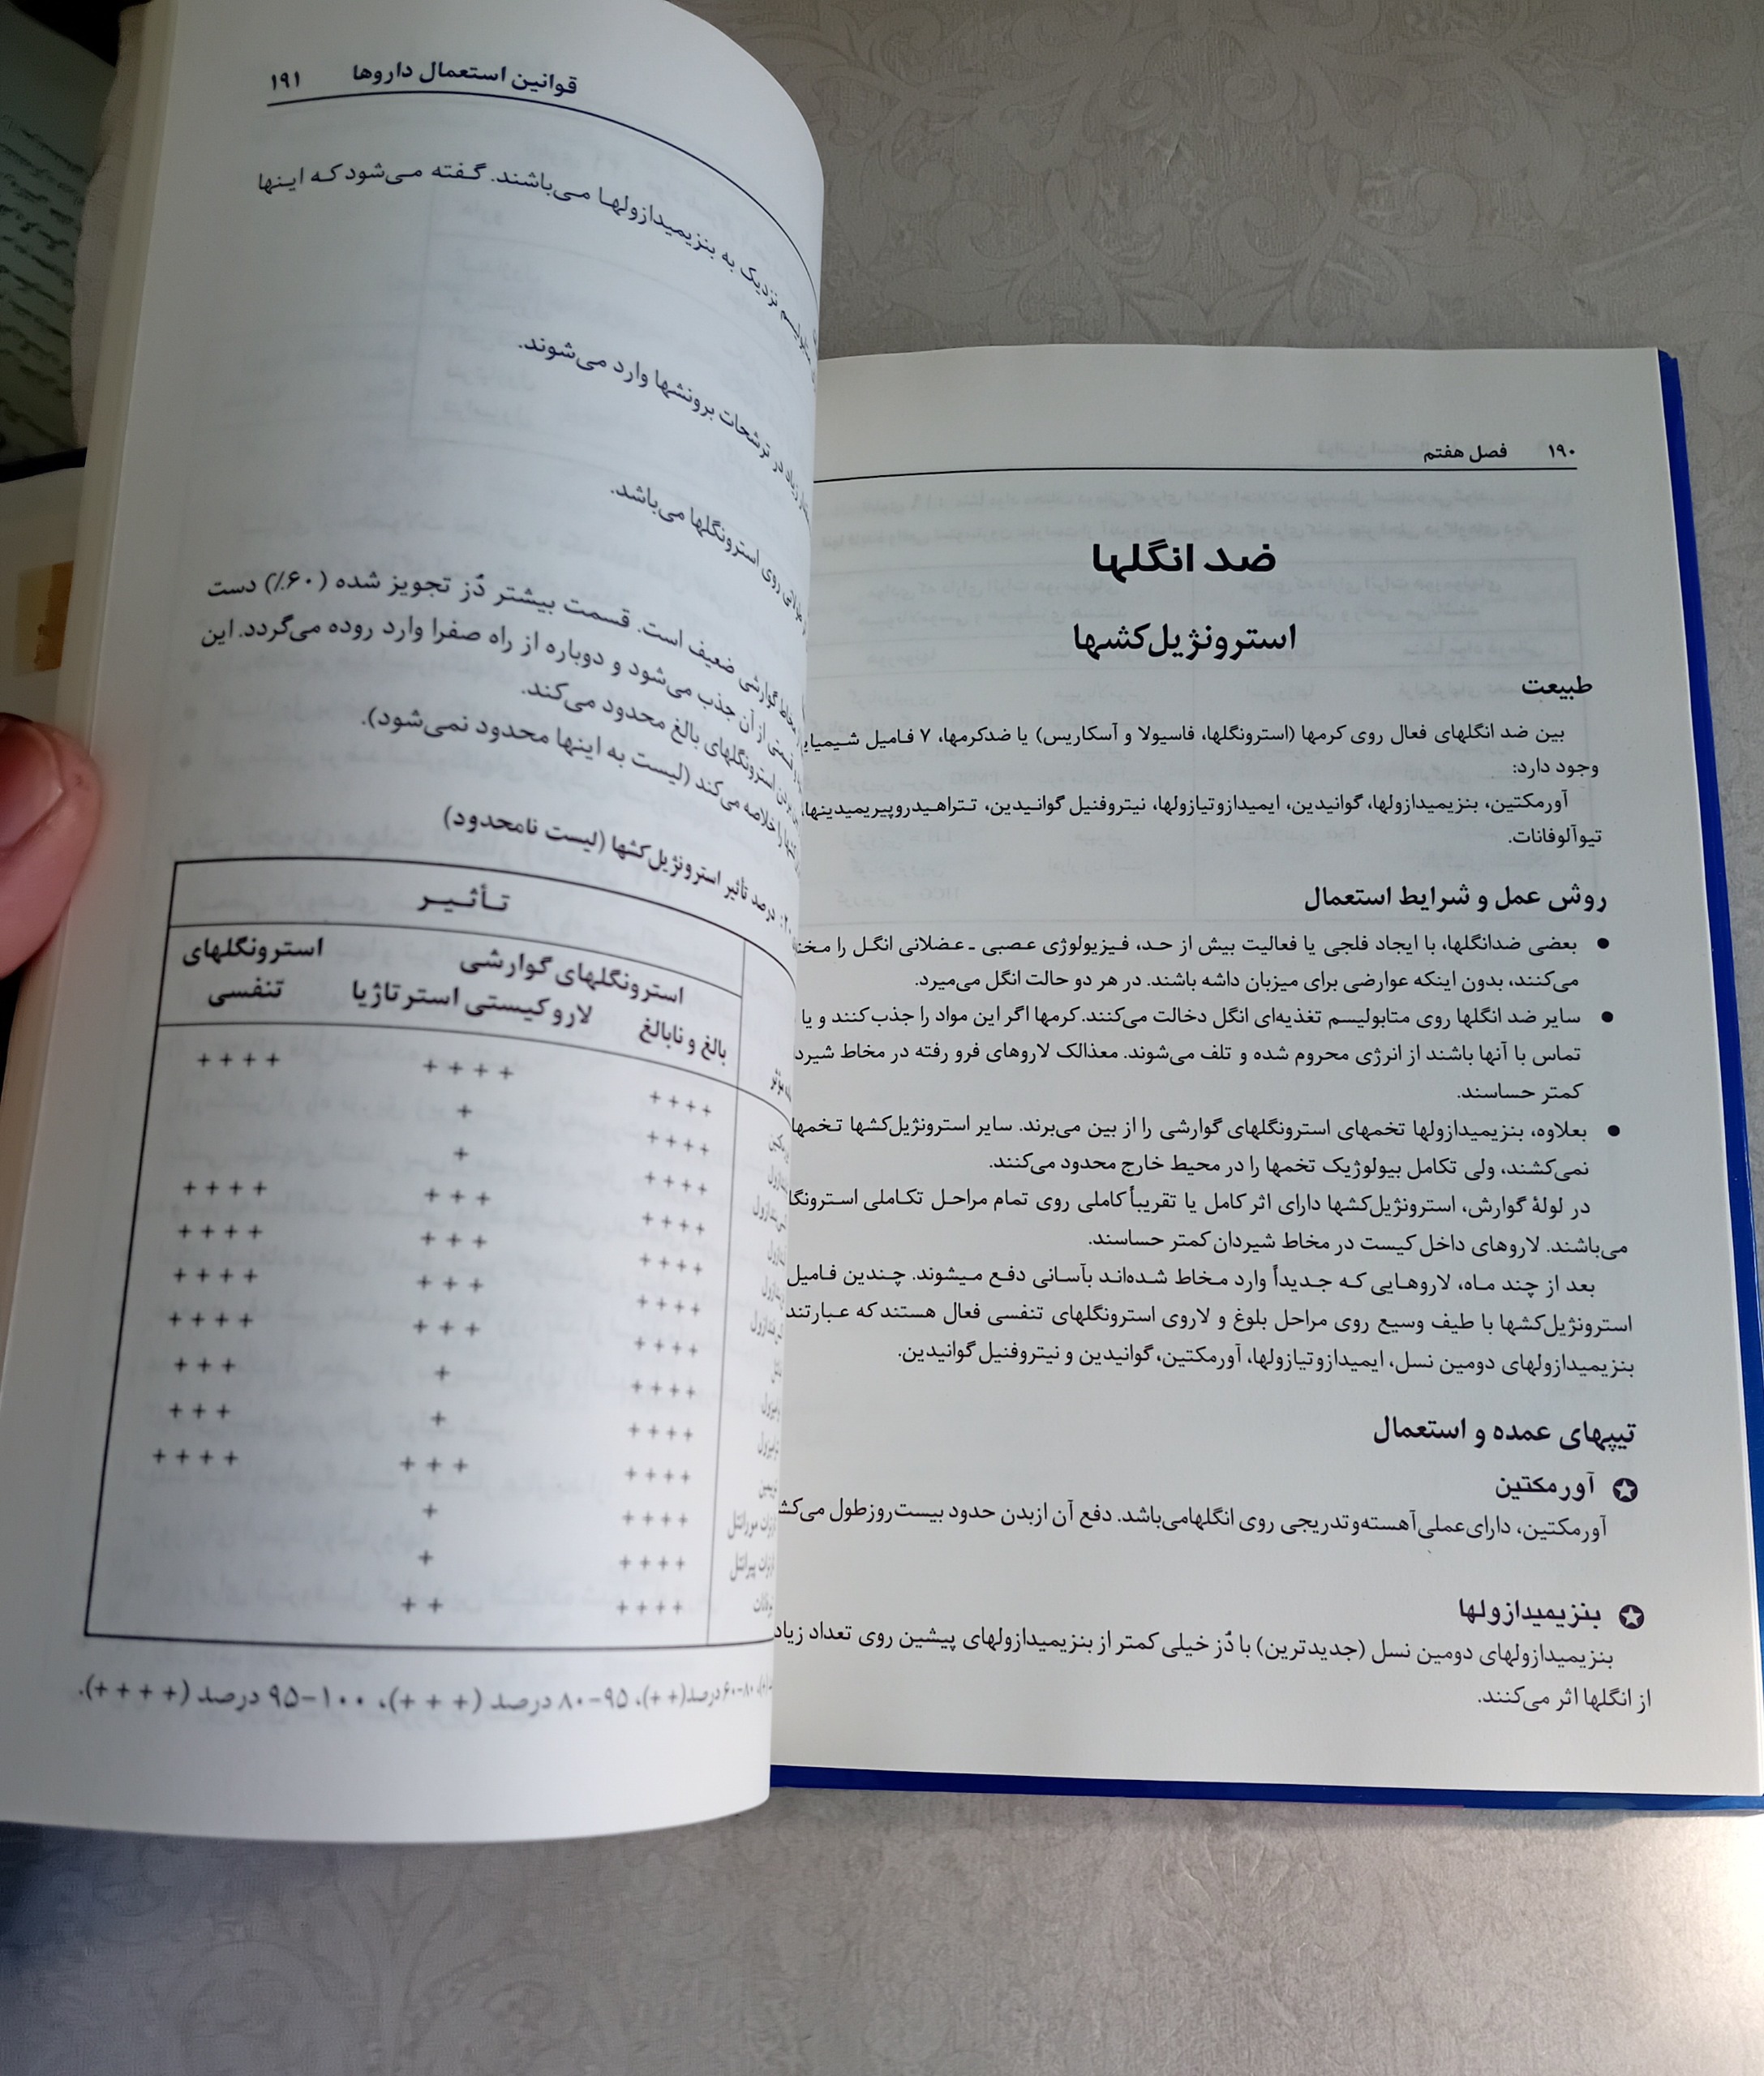 ۱۹۰ فصل هفتم
ضد انگلها
استرونژیل‌کشها
طبیعت
بین ضد انگلهای فعال روی کرمها (استرونگلها، فاسیولا و آسکاریس) یا ضدکرمها، ۷ فامیل
وجود دارد:
آورمکتین، بنزیمیدازولها، گوانیدین، ایمیدازوتیازولها، نیتروفنیل گوانیدین، تتراهیدروپیریمیدینها،
تیوآلوفانات.
روش عمل و شرایط استعمال
● بعضی ضدانگلها، با ایجاد فلجی یا فعالیت بیش از حد، فیزیولوژی عصبی ـ عضلانی انگل را
می‌کنند، بدون اینکه عوارضی برای میزبان داشه باشند. در هر دو حالت انگل می‌میرد.
● سایر ضد انگلها روی متابولیسم تغذیه‌ای انگل دخالت می‌کنند. کرمها اگر این مواد را جذب کنند و یا
تماس با آنها باشند از انرژی محروم شده و تلف می‌شوند. معذالک لاروهای فرو رفته در مخاط
کمتر حساسند.
● بعلاوه، بنزیمیدازولها تخمهای استرونگلهای گوارشی را از بین می‌برند. سایر استرونژیل‌کشها تخمها
نمی‌کشند، ولی تکامل بیولوژیک تخمها را در محیط خارج محدود می‌کنند.
در لولهٔ گوارش، استرونژیل‌کشها دارای اثر کامل یا تقریباً کاملی روی تمام مراحل تکاملی
می‌باشند. لاروهای داخل کیست در مخاط شیردان کمتر حساسند.
بعد از چند ماه، لاروهایی که جدیداً وارد مخاط شده‌اند بآسانی دفع میشوند. چندین فامیل
استرونژیل‌کشها با طیف وسیع روی مراحل بلوغ و لاروی استرونگلهای تنفسی فعال هستند که عبارتند
بنزیمیدازولهای دومین نسل، ایمیدازوتیازولها، آورمکتین، گوانیدین و نیتروفنیل گوانیدین.
تیپهای عمده و استعمال
آورمکتین
آورمکتین، دارای عملی آهسته و تدریجی روی انگلها می‌باشد. دفع آن از بدن حدود بیست روز طول
بنزیمیدازولها
بنزیمیدازولهای دومین نسل (جدیدترین) با دُز خیلی کمتر از بنزیمیدازولهای پیشین روی تعداد زیاد
از انگلها اثر می‌کنند.
قوانین استعمال داروها ۱۹۱
نزدیک به بنزیمیدازولها می‌باشند. گفته می‌شود که اینها
در ترشحات برونشها وارد می‌شوند.
روی استرونگلها می‌باشد.
مخاط گوارشی ضعیف است. قسمت بیشتر دُز تجویز شده (۶۰٪) دست
قسمتی از آن جذب می‌شود و دوباره از راه صفرا وارد روده می‌گردد. این
بردن استرونگلهای بالغ محدود می‌کند.
را خلاصه می‌کند (لیست به اینها محدود نمی‌شود).
درصد تأثیر استرونژیل‌کشها (لیست نامحدود)
تأثیر
استرونگلهای گوارشی استرونگلهای
بالغ و نابالغ لارو کیستی استرتاژیا تنفسی
++++ ++++ ++++
++++ +
++++ +
++++ +++ ++++
++++ +++ ++++
++++ +++ ++++
++++ +++ ++++
++++ + +++
++++ + +++
++++ +++ ++++
مورانتل ++++ +
پیرانتل ++++ +
++++ ++
۶۰-۸۰ درصد (++)، ۸۰-۹۵ درصد (+++)، ۹۵-۱۰۰ درصد (++++).